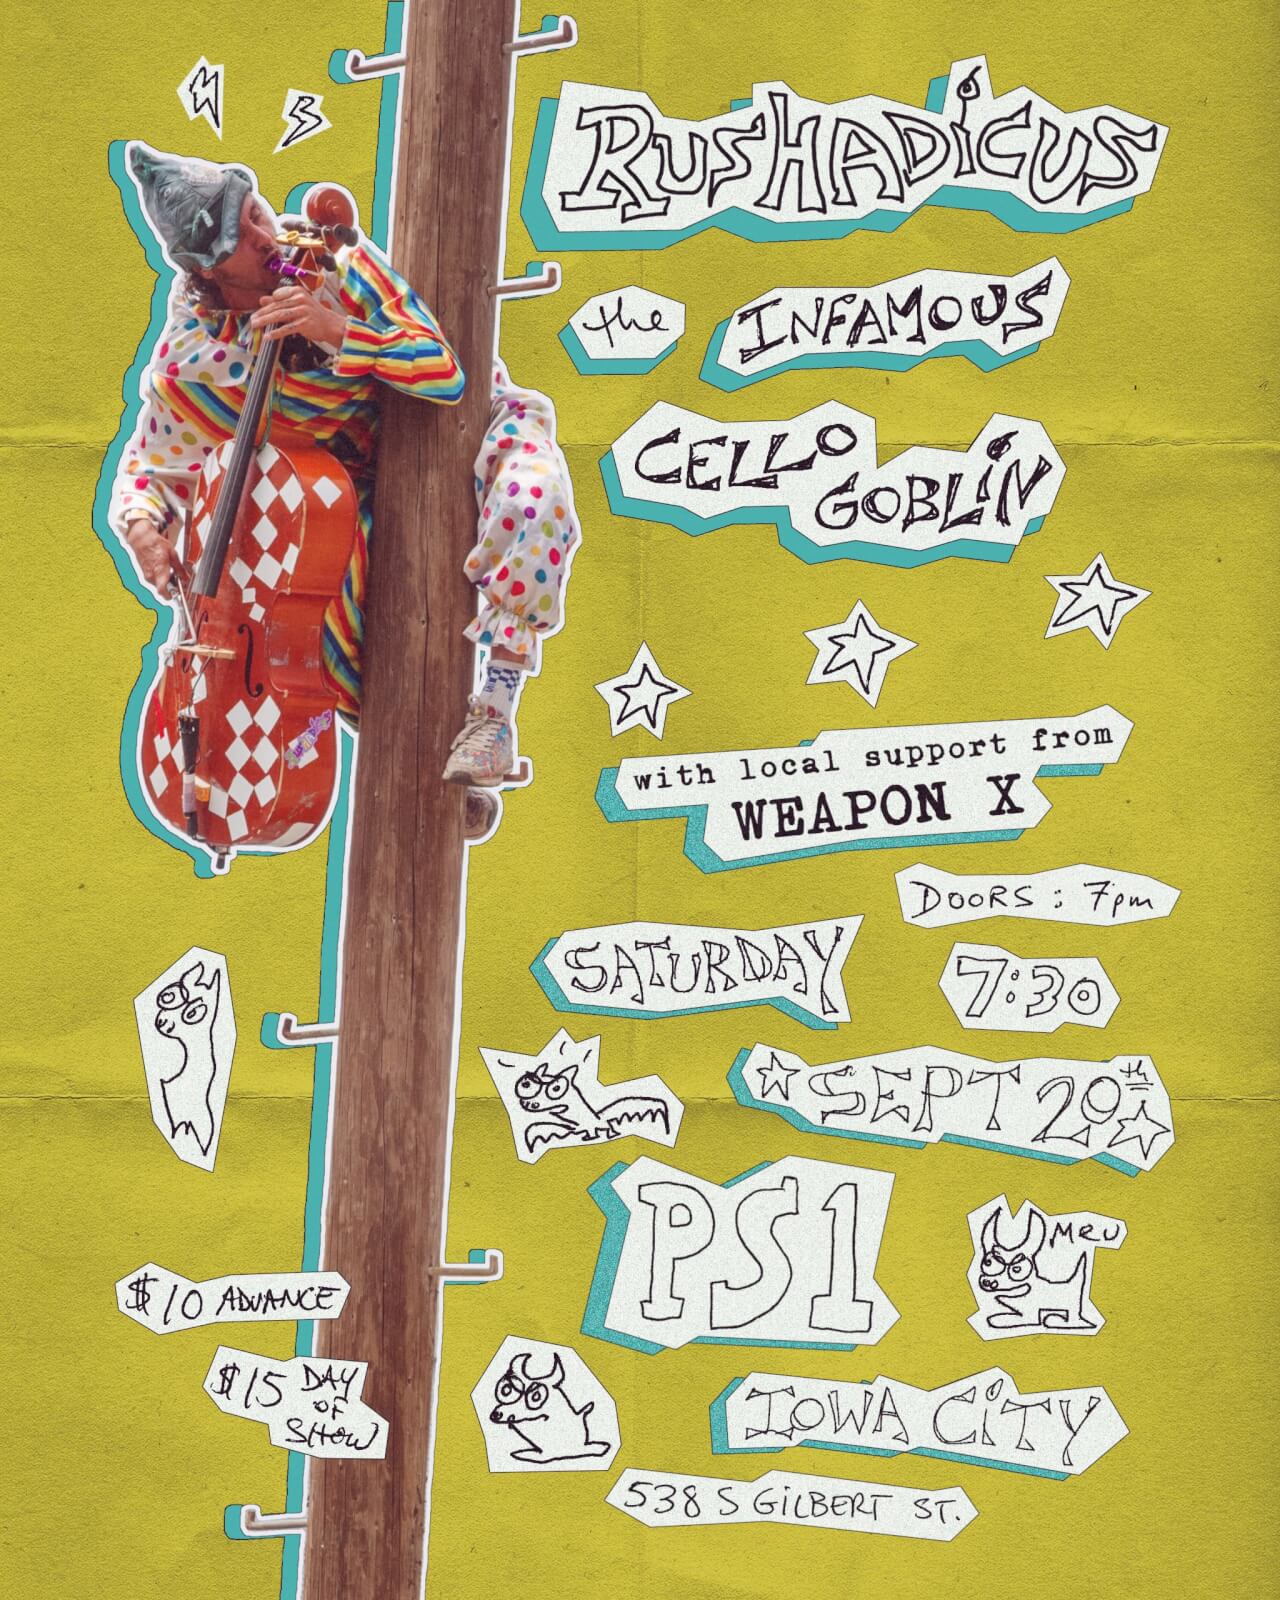 RUSHADiCUS
the INFAMOUS
CELLO
GOBLiN
with local support from
WEAPON X
DOORS : 7pm
SATURDAY
7:30
SEPT 20th
PS1
MRU
$10 ADVANCE
$15 DAY
OF
SHOW
IOWA CiTY
538 S GiLBERT ST.